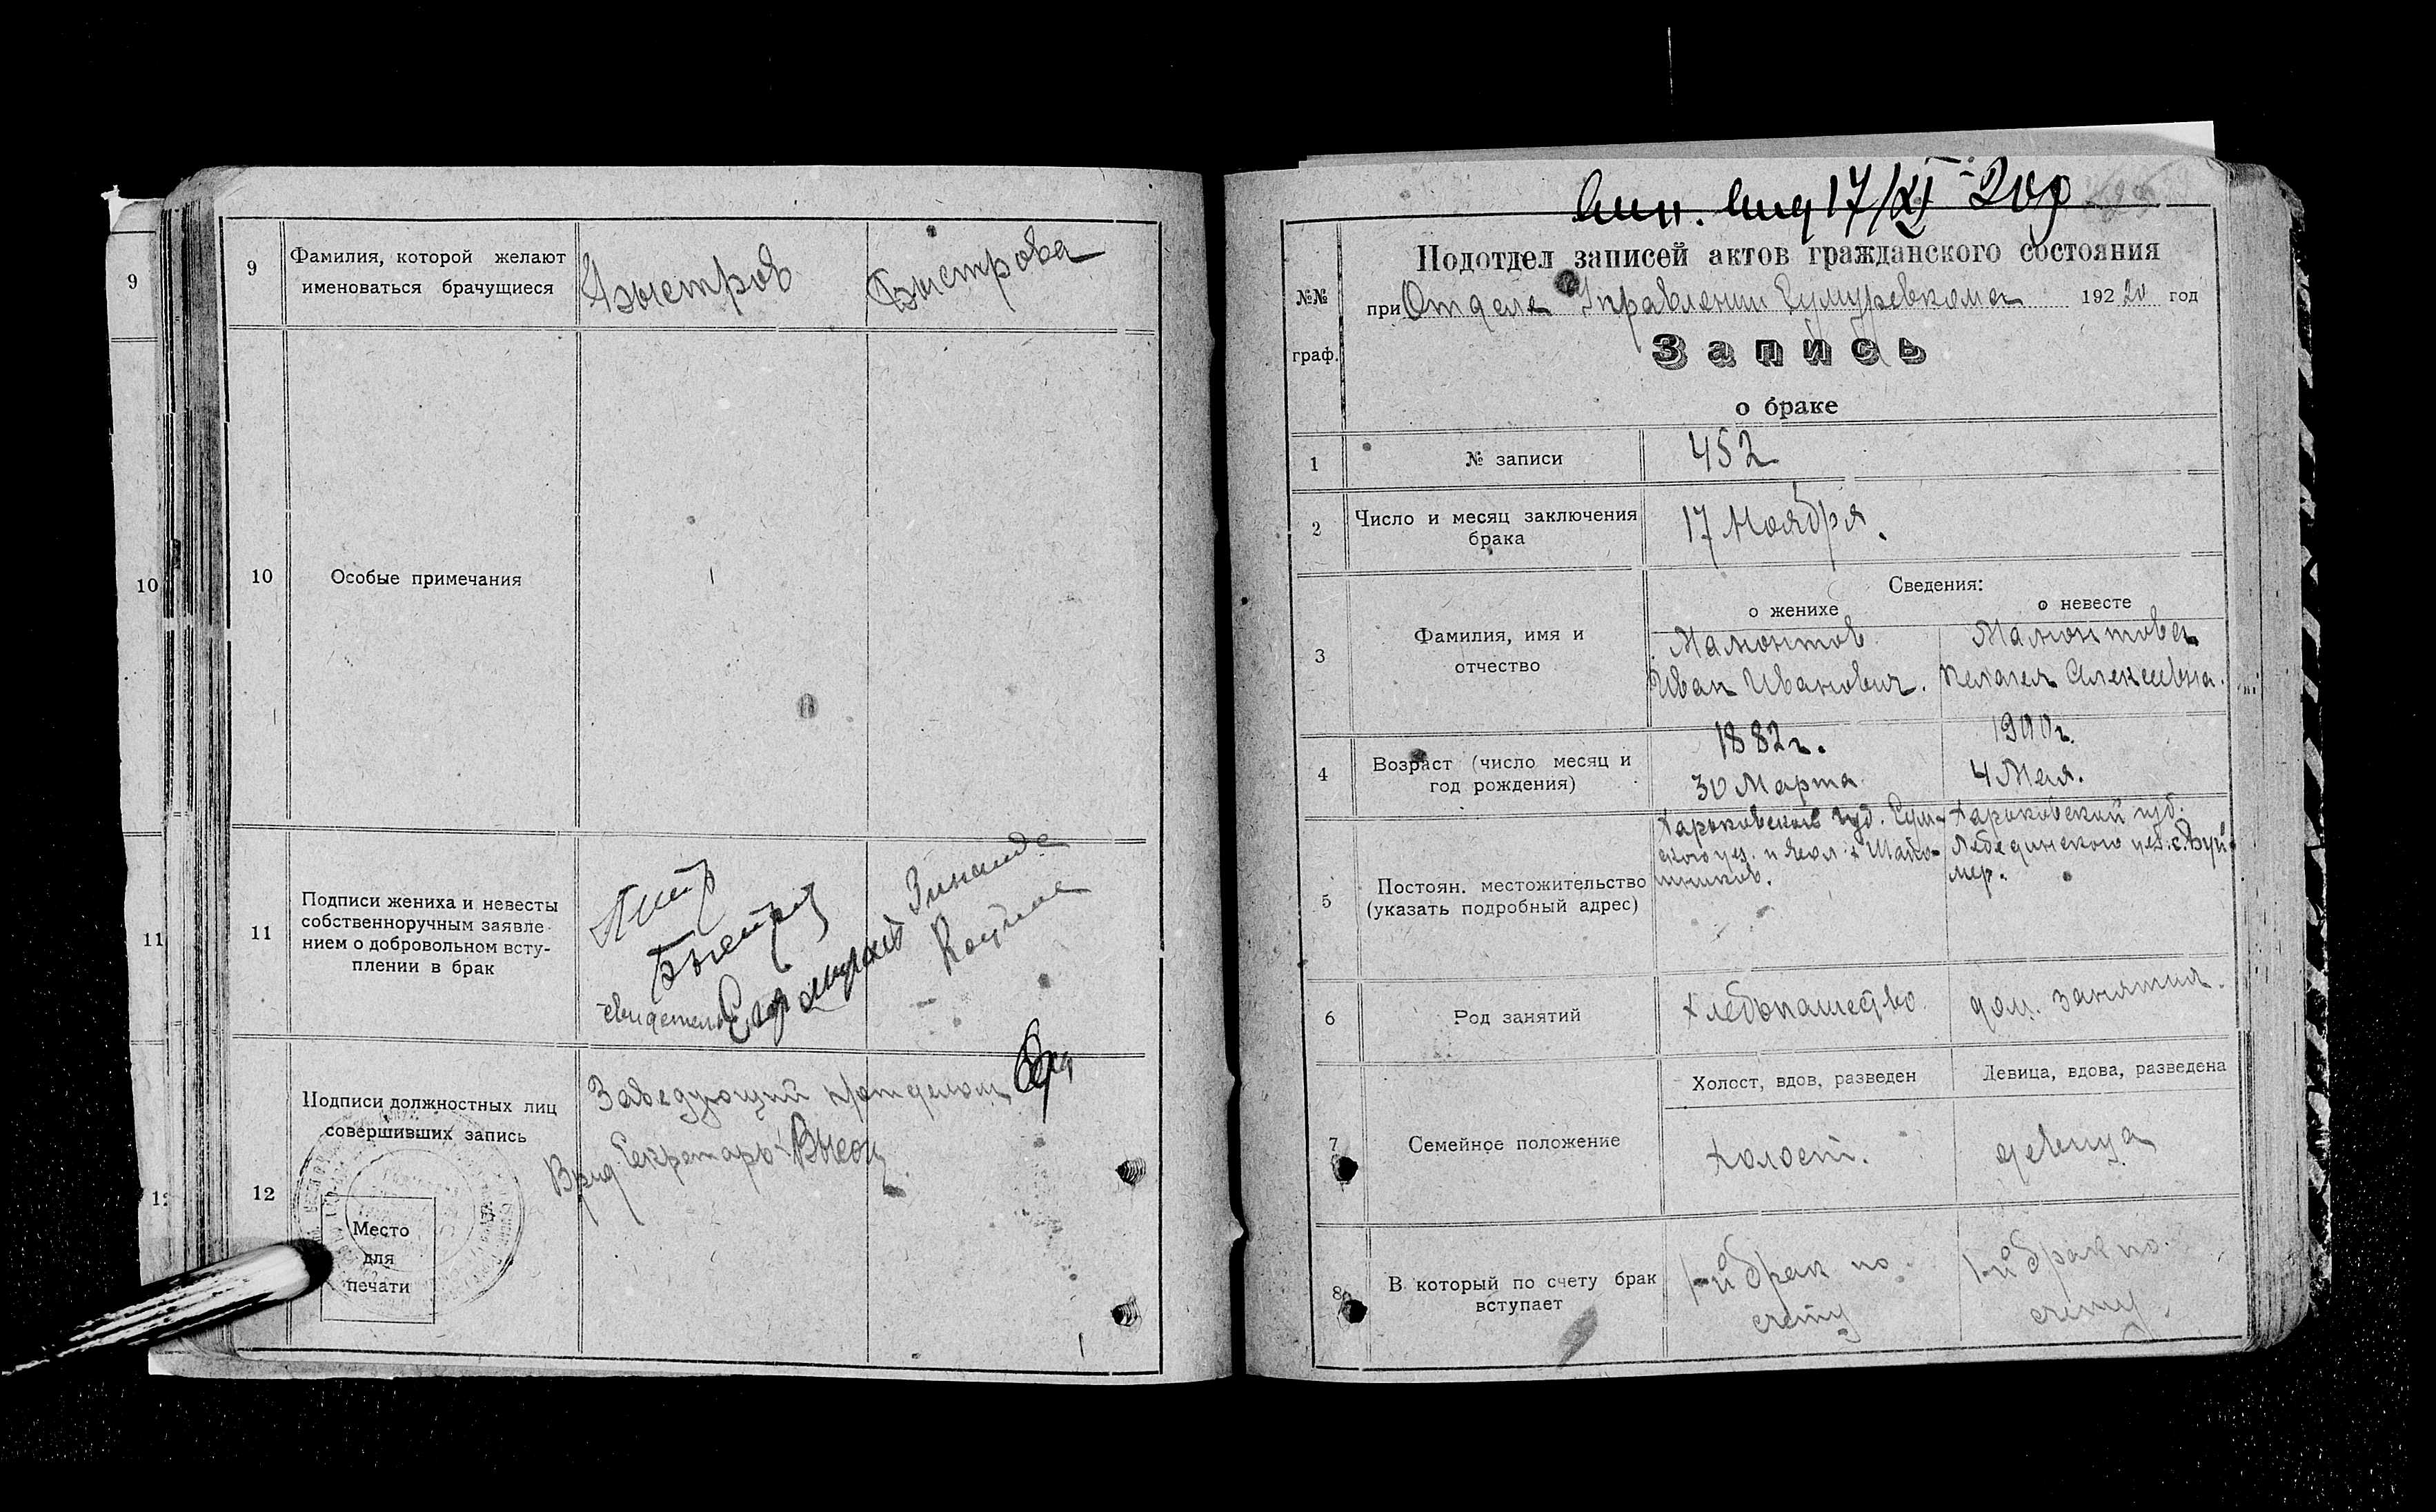 9
10
11
9
Фамилия, которой желают
именоваться брачущиеся
Быстров
Быстрова
10
Особые примечания
11
Подписи жениха и невесты
собственноручным заявле-
нием о добровольном всту-
плении в брак
Быстров
Зинаида
свидетель
12
Подписи должностных лиц
совершивших запись
Заведующий п/отделом
Врид Секретарь
Место
для
печати
17/XI-20г
№№
граф.
Подотдел записей актов гражданского состояния
при Отделе Управлении Сумуревкома 1920 год
Запись
о браке
1
№ записи
452
2
Число и месяц заключения
брака
17 Ноября.
Сведения:
о женихе
о невесте
3
Фамилия, имя и
отчество
Мамонтов
Иван Иванович.
Мамонтова
Пелагея Алексеевна.
4
Возраст (число месяц и
год рождения)
1882г.
30 Марта
1900г.
4 Мая.
5
Постоян. местожительство
(указать подробный адрес)
Харьковской губ. Сум-
ского уез.
Харьковский губ.
Лебединского уез. с. Буй-
мер.
6
Род занятий
Хлебопашество
дом. занятия.
7
Семейное положение
Холост, вдов, разведен
Девица, вдова, разведена
Холост.
девица
8
В который по счету брак
вступает
1-й брак по
счету
1-й брак по
счету.